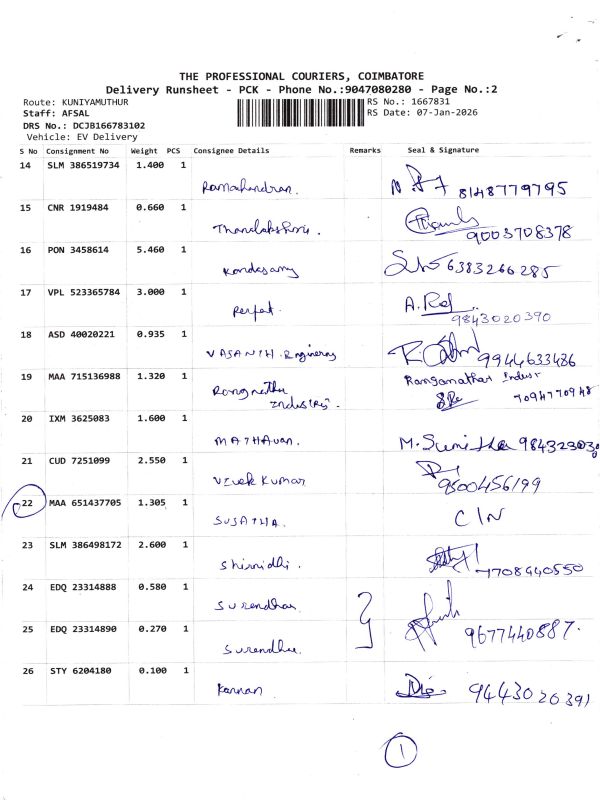 THE PROFESSIONAL COURIERS, COIMBATORE
Delivery Runsheet - PCK - Phone No.:9047080280 - Page No.:2
Route: KUNIYAMUTHUR RS No.: 1667831
Staff: AFSAL RS Date: 07-Jan-2026
DRS No.: DCJB166783102
Vehicle: EV Delivery
S No Consignment No Weight PCS Consignee Details Remarks Seal & Signature
14 SLM 386519734 1.400 1
Ramachandran. 8148779795
15 CNR 1919484 0.660 1
9003708378
16 PON 3458614 5.460 1
Kondasamy 6383266285
17 VPL 523365784 3.000 1
Perfect. A. Raj
9843020390
18 ASD 40020221 0.935 1
VASANTH. Engineers 9944633486
19 MAA 715136988 1.320 1 Ranganathar Indust
Industries. 7094770948
20 IXM 3625083 1.600 1
MATHAvan. M. Sumitha
21 CUD 7251099 2.550 1
Vivek Kumar 9500456199
22 MAA 651437705 1.305 1
SUJATHA. C/N
23 SLM 386498172 2.600 1
Shirnidhi. 7708440550
24 EDQ 23314888 0.580 1
Surendhar
25 EDQ 23314890 0.270 1 9677440887.
Surendhar
26 STY 6204180 0.100 1
Kannan 9443020391
1